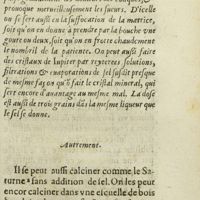 prouoque merueilleusement les fleurs. D'icelle
on se sert aussi en la suffocation de la matrice,
soit qu'on en donne à prendre par la bouche vne
goutte ou deux, soit qu'on en frotte chaudement
le nombril de la patiente. On peut aussi faire
des cristaux de Iupiter par reyterees solutions,
filtrations & euaporations de sel susdit presque
de mesme façon qu'on fait le cristal mineral, qui
sert encore d'auantage au mesme mal. La dose
est aussi de trois grains dãs la mesme liqueur que
le sel se donne.
Autrement.
Il se peut aussi calciner comme le Sa-
turne sans addition de sel. On les peut
encor calciner dans vne escuelle de bois